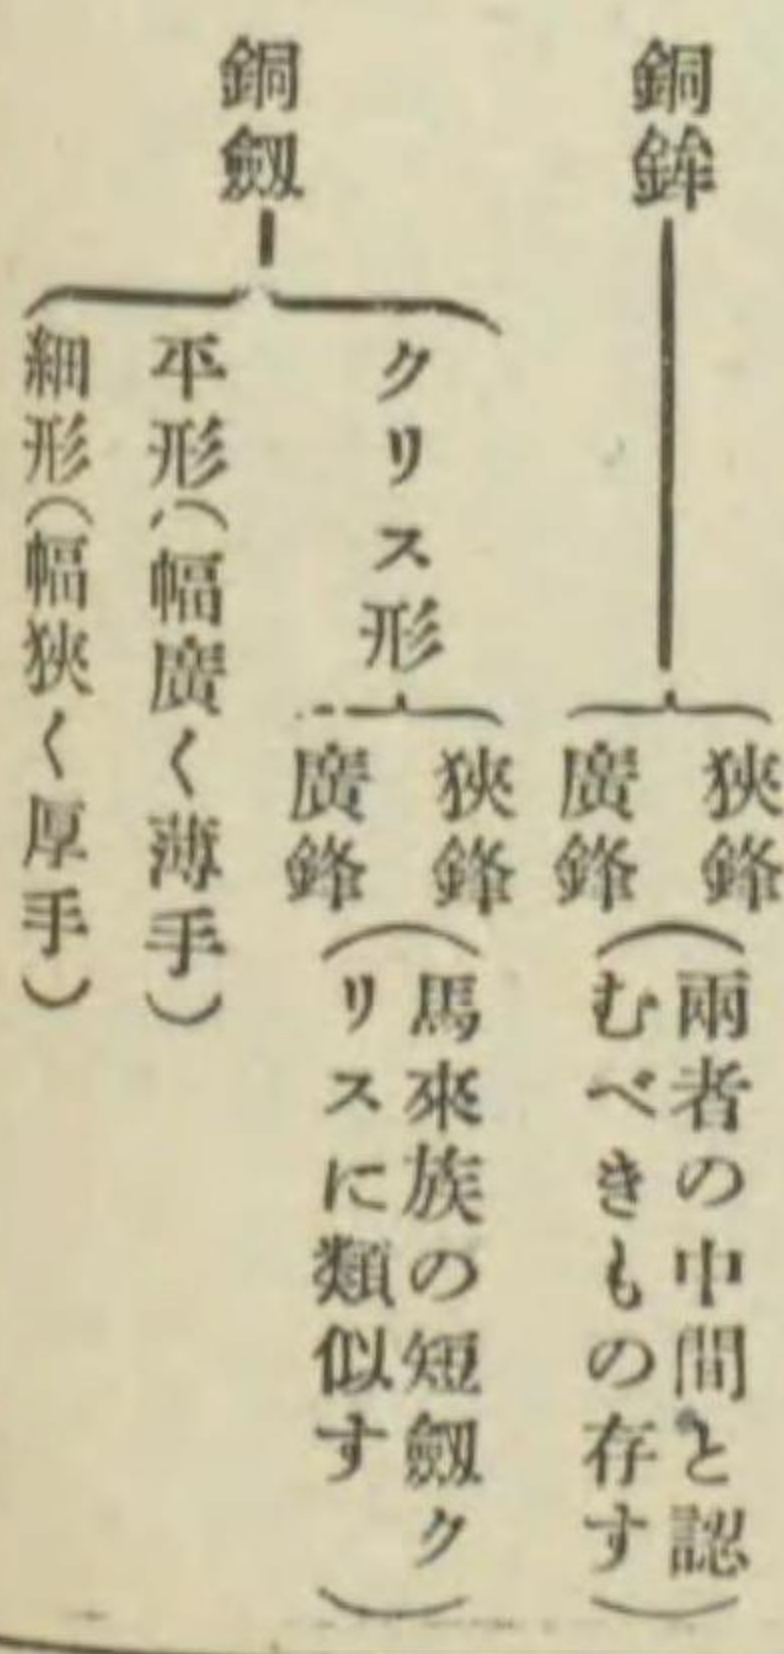 銅鉾
狹鋒
廣鋒
(兩者の中間と認
むべきもの存す)
銅劔
クリス形
狹鋒
廣鋒
(馬來族の短劔ク
リスに類似す)
平形(幅廣く薄手)
細形(幅狹く厚手)